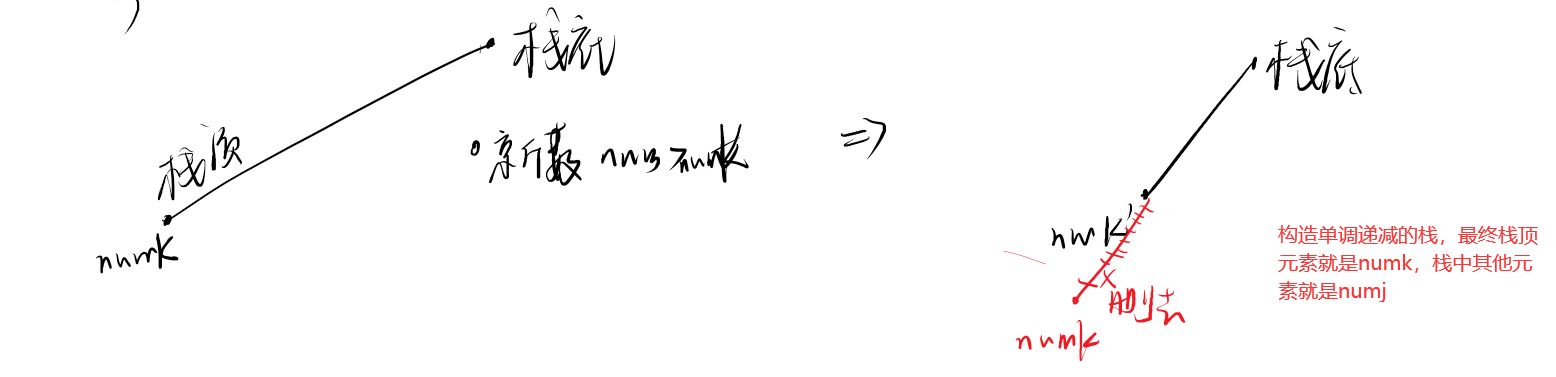 栈底
栈顶
numk
新数 nums > numk
=>
栈底
numk'
删去
numk
构造单调递减的栈，最终栈顶
元素就是numk，栈中其他元
素就是numj